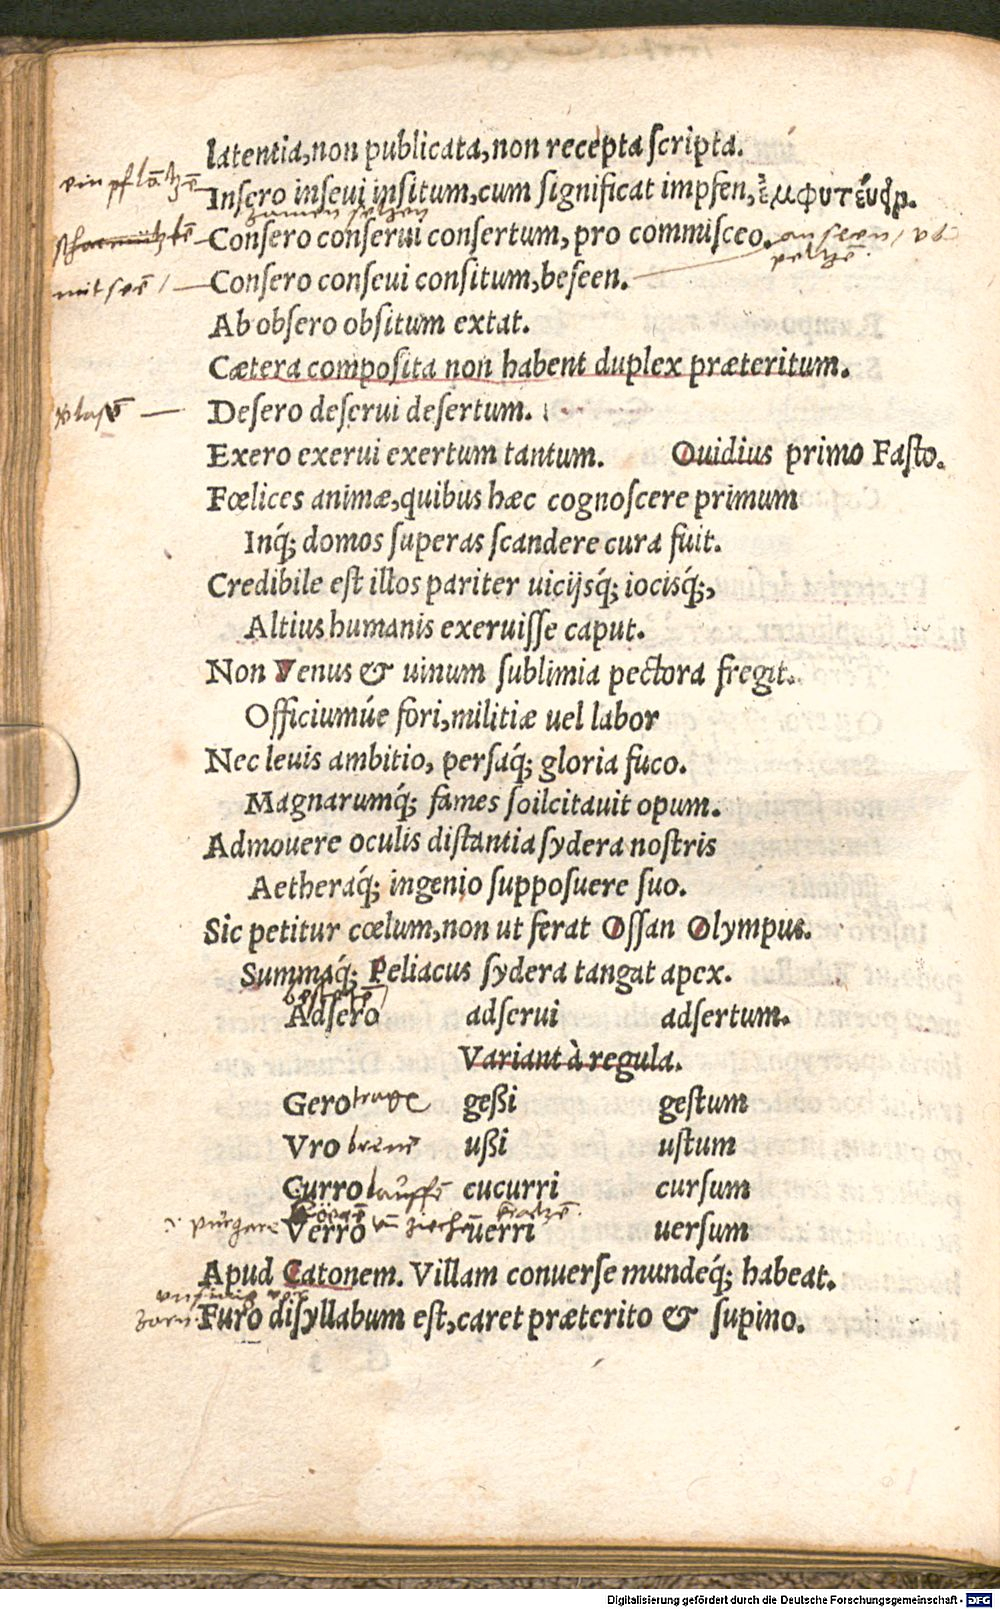 latentia,non publicata,non recepta ſcripta.
ein pflātzē
Inſero inſeui inſitum,cum ſignificat impfen,
zamen ſetzen
Conſero conſerui conſertum, pro commiſceo.
Conſero conſeui conſitum,beſeen.
mit ſeē
Ab obſero obſitum extat.
Cætera compoſita non habent duplex præteritum.
Deſero deſerui deſertum.
Exero exerui exertum tantum. Ouidius primo Faſto.
Fœlices animæ,quibus hæc cognoſcere primum
Inq́; domos ſuperas ſcandere cura fuit.
Credibile eſt illos pariter uicijsq́; iocisq́;,
Altius humanis exeruiſſe caput.
Non Venus & uinum ſublimia pectora fregit.
Officiumúe fori,militiæ uel labor
Nec leuis ambitio, perſaq́; gloria fuco.
Magnarumq́; fames ſoilcitauit opum.
Admouere oculis diſtantia ſydera noſtris
Aetheraq́; ingenio ſuppoſuere ſuo.
Sic petitur cœlum,non ut ferat Oſſan Olympus.
Summaq́; Peliacus ſydera tangat apex.
Adſero adſerui adſertum.
Variant à regula.
Gero trage geßi geſtum
Vro brenē ußi uſtum
Curro lauffē cucurri curſum
Verro uerri uerſum
Apud Catonem. Villam conuerſe mundeq́; habeat.
Furo diſyllabum eſt,caret præterito & ſupino.
Digitalisierung gefördert durch die Deutsche Forschungsgemeinschaft - DFG